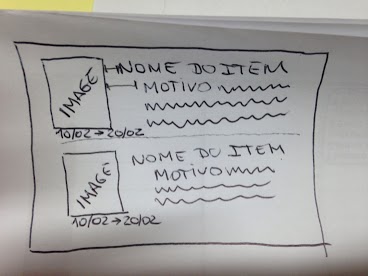 IMAGE
NOME DO ITEM
MOTIVO
10/02 → 20/02
IMAGE
NOME DO ITEM
MOTIVO
10/02 → 20/02